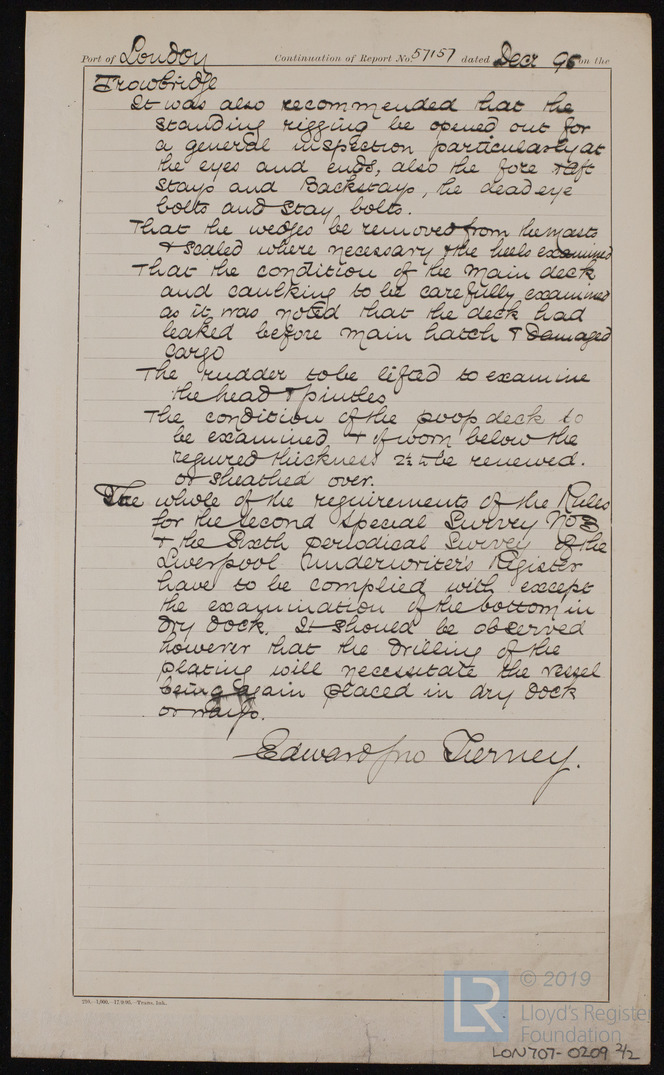 Port of London Continuation of Report No. 57157 dated Decr 95 on the
Trowbridge
It was also recommended that the
standing rigging be opened out for
a general inspection particularly at
the eyes and ends, also the fore & aft
stays and Backstays, the deadeye
bolts and stay bolts.
That the wedges be removed from the masts
& scaled where necessary & the heels examined
That the condition of the main deck
and caulking to be carefully examined
as it was noted that the deck had
leaked before main hatch & damaged
cargo
The rudder to be lifted to examine
the head & pintles
The condition of the poop deck to
be examined & if worn below the
required thickness 2½ in be renewed.
or sheathed over.
The whole of the requirements of the Rules
for the second Special Survey No 3
& the Sixth periodical Survey of the
Liverpool Underwriter's Register
have to be complied with except
the examination of the bottom in
dry dock. It should be observed
however that the drilling of the
plating will necessitate the vessel
being again placed in dry dock
or ways.
Edward Jno Tierney.
LR © 2019
Lloyd's Register
Foundation
LON707-0209 2/2